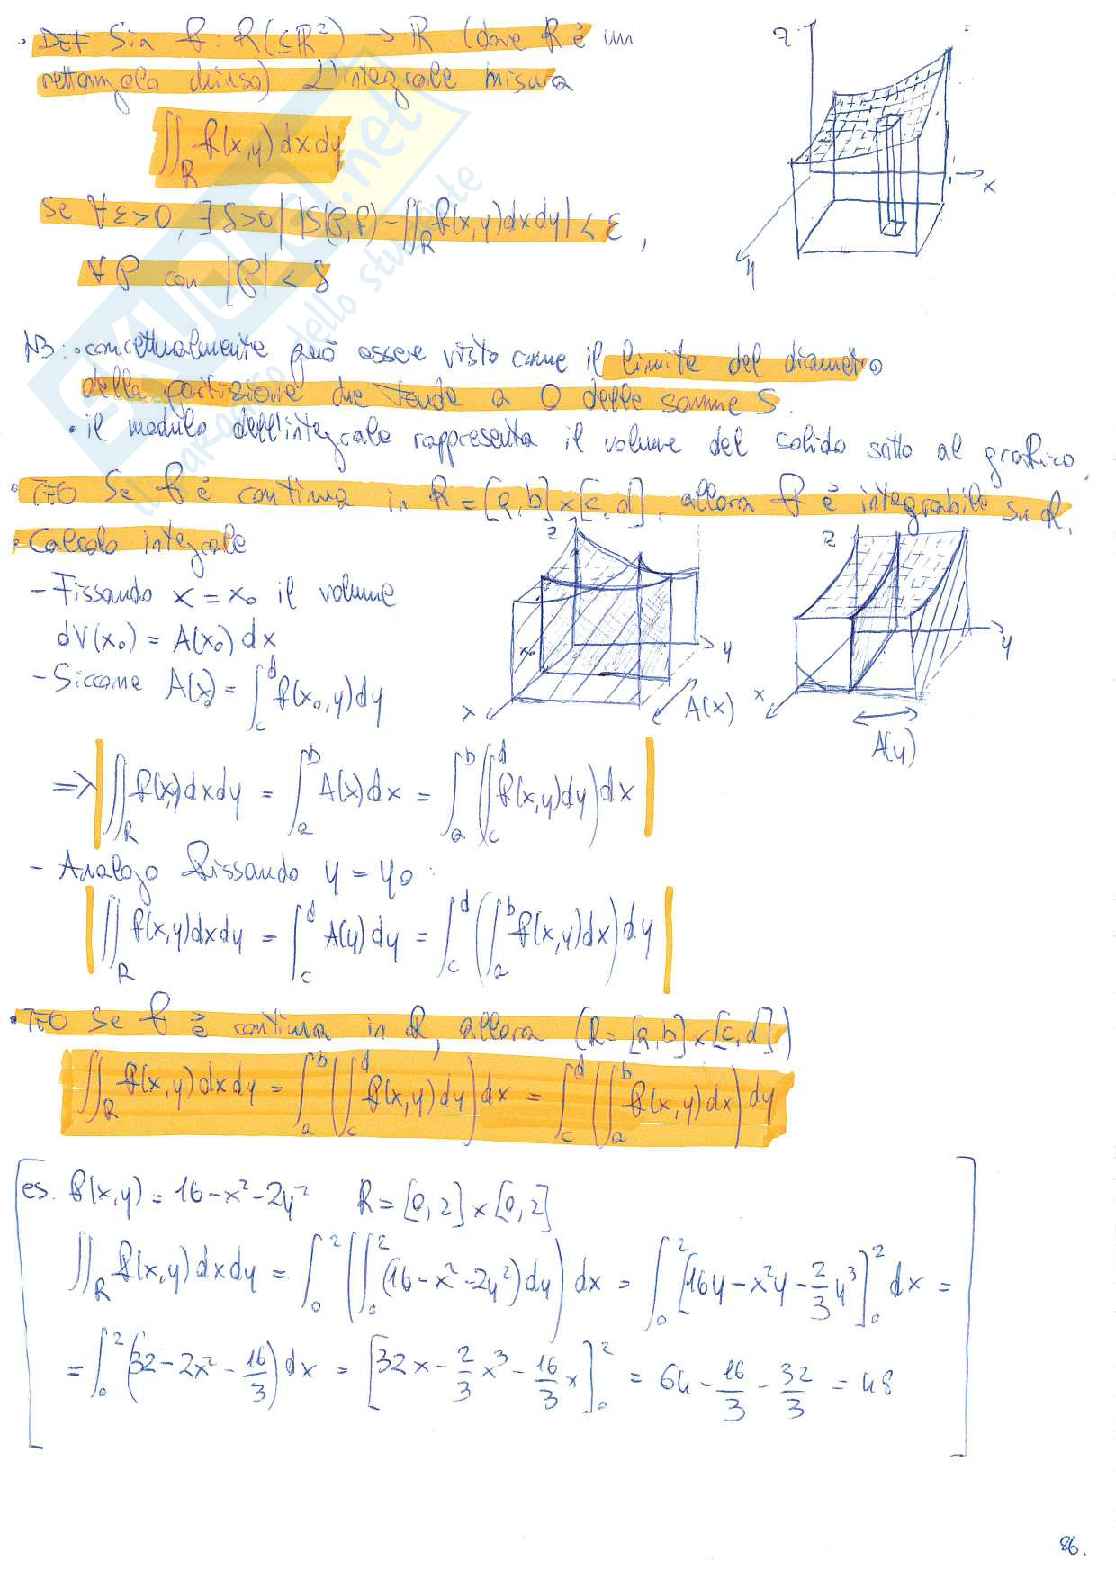 · DEF Sia f: R(⊆ℝ²) → ℝ (dove R è un
rettangolo chiuso) L'integrale misura
∬_R f(x,y) dx dy
se ∀ε>0, ∃δ>0 | |S(f,P) - ∬_R f(x,y)dxdy| < ε,
∀P con |P| < δ
z
x
y
NB: · concettualmente può essere visto come il limite del diametro
della partizione che tende a 0 delle somme S.
· il modulo dell'integrale rappresenta il volume del solido sotto al grafico.
· TEO Se f è continua in R = [a,b] × [c,d], allora f è integrabile su R.
· Calcolo integrale
- Fissando x = x₀ il volume
dV(x₀) = A(x₀) dx
- Siccome A(x₀) = ∫_c^d f(x₀,y) dy
z
x₀
y
x
A(x)
z
y
x
A(y)
=> ∬_R f(x,y) dx dy = ∫_a^b A(x) dx = ∫_a^b (∫_c^d f(x,y) dy) dx
- Analogo fissando y = y₀:
∬_R f(x,y) dx dy = ∫_c^d A(y) dy = ∫_c^d (∫_a^b f(x,y) dx) dy
· TEO Se f è continua in R, allora (R = [a,b] × [c,d])
∬_R f(x,y) dx dy = ∫_a^b (∫_c^d f(x,y) dy) dx = ∫_c^d (∫_a^b f(x,y) dx) dy
es. f(x,y) = 16 - x² - 2y² R = [0,2] × [0,2]
∬_R f(x,y) dx dy = ∫_0^2 (∫_0^2 (16 - x² - 2y²) dy) dx = ∫_0^2 [16y - x²y - 2/3 y³]_0^2 dx =
= ∫_0^2 (32 - 2x² - 16/3) dx = [32x - 2/3 x³ - 16/3 x]_0^2 = 64 - 16/3 - 32/3 = 48
86.